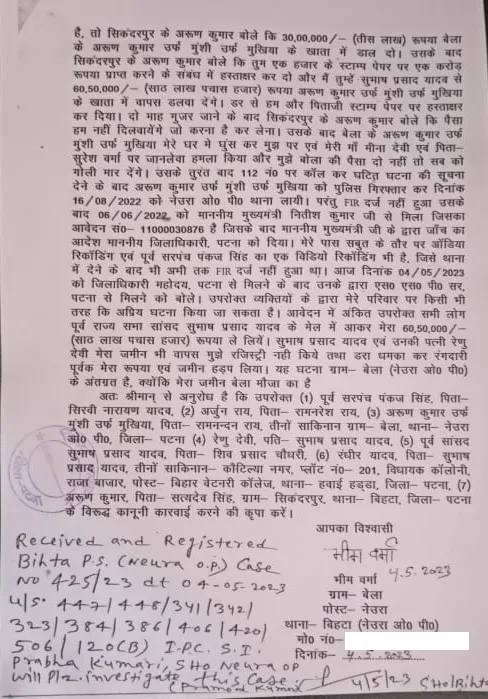 है, तो सिकंदरपुर के अरूण कुमार बोले कि 30,00,000/– (तीस लाख) रूपया बेला
के अरूण कुमार उर्फ मुंशी उर्फ मुखिया के खाता में डाल दो। उसके बाद
सिकंदरपुर के अरूण कुमार बोले कि तुम एक हजार के स्टाम्प पेपर पर एक करोड़
रूपया प्राप्त करने के संबंध में हस्ताक्षर कर दो और मैं तुम्हें सुभाष प्रसाद यादव से
60,50,000/– (साठ लाख पचास हजार) रूपया अरूण कुमार उर्फ मुंशी उर्फ मुखिया
के खाता में वापस डलवा देंगे। डर से हम और पिताजी स्टाम्प पेपर पर हस्ताक्षर
कर दिया। दो माह गुजर जाने के बाद सिकंदरपुर के अरूण कुमार बोले कि पैसा
हम नहीं दिलवायेंगे जो करना है कर लेना। उसके बाद बेला के अरूण कुमार उर्फ
मुंशी उर्फ मुखिया मेरे घर मे घुंस कर मुझ पर एवं मेरी माँ मीना देवी एवं पिता–
सुरेश वर्मा पर जानलेवा हमला किया और मुझे बोला की पैसा दो नहीं तो सब को
गोली मार देंगे। उसके तुरंत बाद 112 नं0 पर कॉल कर घटित घटना की सूचना
देने के बाद अरूण कुमार उर्फ मुंशी उर्फ मुखिया को पुलिस गिरफ्तार कर दिनांक
16/08/2022 को नेउरा ओ0 पी0 थाना लायी। परंतु FIR दर्ज नहीं हुआ उसके
बाद 06/06/2022 को माननीय मुख्यमंत्री नितीश कुमार जी से मिला जिसका
आवेदन सं0– 11000030876 है जिसके बाद माननीय मुख्यमंत्री जी के द्वारा जाँच का
आदेश माननीय जिलाधिकारी, पटना को दिया। मेरे पास सबुत के तौर पर ऑडिया
रिकॉडिंग एवं पूर्व सरपंच पंकज सिंह का एक विडियो रिकॉडिंग भी है, जिसे थाना
में देने के बाद भी अभी तक FIR दर्ज नहीं हुआ था। आज दिनांक 04/05/2023
को जिलाधिकारी महोदय, पटना से मिलने के बाद उनके द्वारा एस0 एस0 पी0 सर,
पटना से मिलने को बोले। उपरोक्त व्यक्तियों के द्वारा मेरे परिवार पर किसी भी
तरह कि अप्रिय घटना किया जा सकता है। आवेदन में अंकित उपरोक्त सभी लोग
पूर्व राज्य सभा सांसद सुभाष प्रसाद यादव के मेल में आकर मेरा 60,50,000/–
(साठ लाख पचास हजार) रूपया ले लियें। सुभाष प्रसाद यादव एवं उनकी पत्नी रेणु
देवी मेरा जमीन भी वापस मुझे रजिस्ट्री नही किये तथा डरा धमका कर रंगदारी
पूर्वक मेरा रूपया एवं जमीन हड़प लिया। यह घटना ग्राम– बेला (नेउरा ओ0 पी0)
के अंतग्रत है, क्योंकि मेरा जमीन बेला मौजा का है
अतः श्रीमान् से अनुरोध है कि उपरोक्त (1) पूर्व सरपंच पंकज सिंह, पिता–
सिरवी नारायण यादव, (2) अर्जुन राय, पिता– रामनरेश राय, (3) अरूण कुमार उर्फ
मुंशी उर्फ मुखिया, पिता– रामनन्दन राय, तीनों साकिनान ग्राम– बेला, थाना– नेउरा
ओ0 पी0, जिला– पटना (4) रेणु देवी, पति– सुभाष प्रसाद यादव, (5) पूर्व सांसद
सुभाष प्रसाद यादव, पिता– शिव प्रसाद चौधरी, (6) रंधीर यादव, पिता– सुभाष
प्रसाद यादव, तीनों साकिनान– कौटिल्या नगर, प्लॉट नं0– 201, विधायक कॉलोनी,
राजा बाजार, पोस्ट– बिहार वेटनरी कॉलेज, थाना– हवाई हड्डा, जिला– पटना, (7)
अरूण कुमार, पिता– सत्यदेव सिंह, ग्राम– सिकंदरपुर, थाना– बिहटा, जिला– पटना
के विरूद्ध कानूनी कारवाई करने की कृपा करें।
आपका विश्वासी
भीम वर्मा
4.5.2023
भीम वर्मा
ग्राम– बेला
पोस्ट– नेउरा
थाना– बिहटा (नेउरा ओ0 पी0)
मो0 नं0–
दिनांक– 4.5.2023
Received and Registered
Bihta P.S. (Neura O.P.) Case
No 425/23 dt 04-05-2023
u/s 447/448/341/342/
323/384/386/406/420/
506/120(B) I.P.C. S.I.
Prabha Kumari, SHO Neura OP
will Plz. investigate this Case.
(Pramod Kumar)
4/5/23 SHO/Bihta